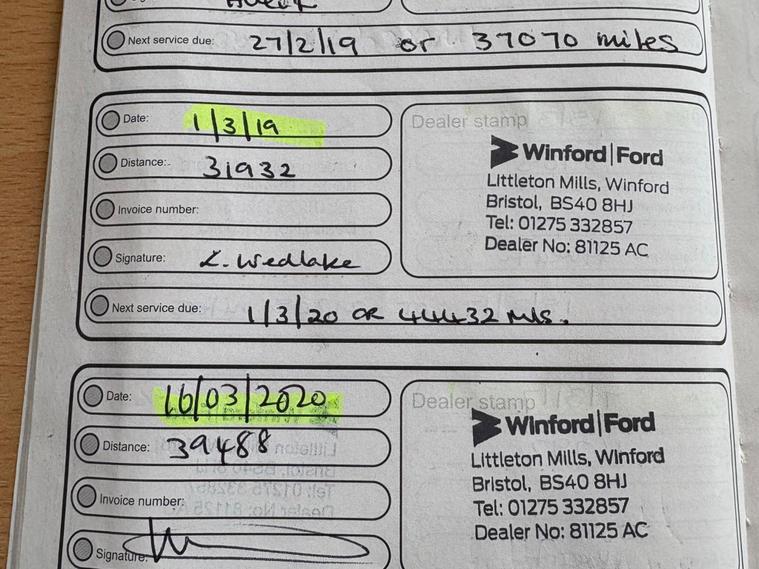 Next service due: 27/2/19 or 37070 miles
Date: 1/3/19
Distance: 31932
Invoice number:
Signature: L. Wedlake
Next service due: 1/3/20 OR 44432 Mls.
Dealer stamp
Winford|Ford
Littleton Mills, Winford
Bristol, BS40 8HJ
Tel: 01275 332857
Dealer No: 81125 AC
Date: 16/03/2020
Distance: 39488
Invoice number:
Signature:
Dealer stamp
Winford|Ford
Littleton Mills, Winford
Bristol, BS40 8HJ
Tel: 01275 332857
Dealer No: 81125 AC